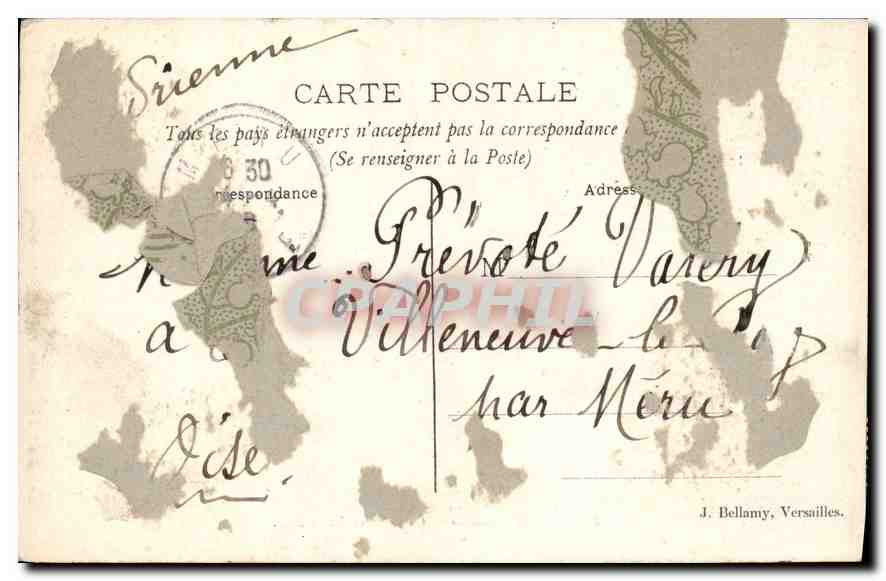 CARTE POSTALE
Tous les pays étrangers n'acceptent pas la correspondance
(Se renseigner à la Poste)
30
respondance
Adress
Prévoté
CPAPHIL
a Villeneuve-le
par Méru
Oise
J. Bellamy, Versailles.